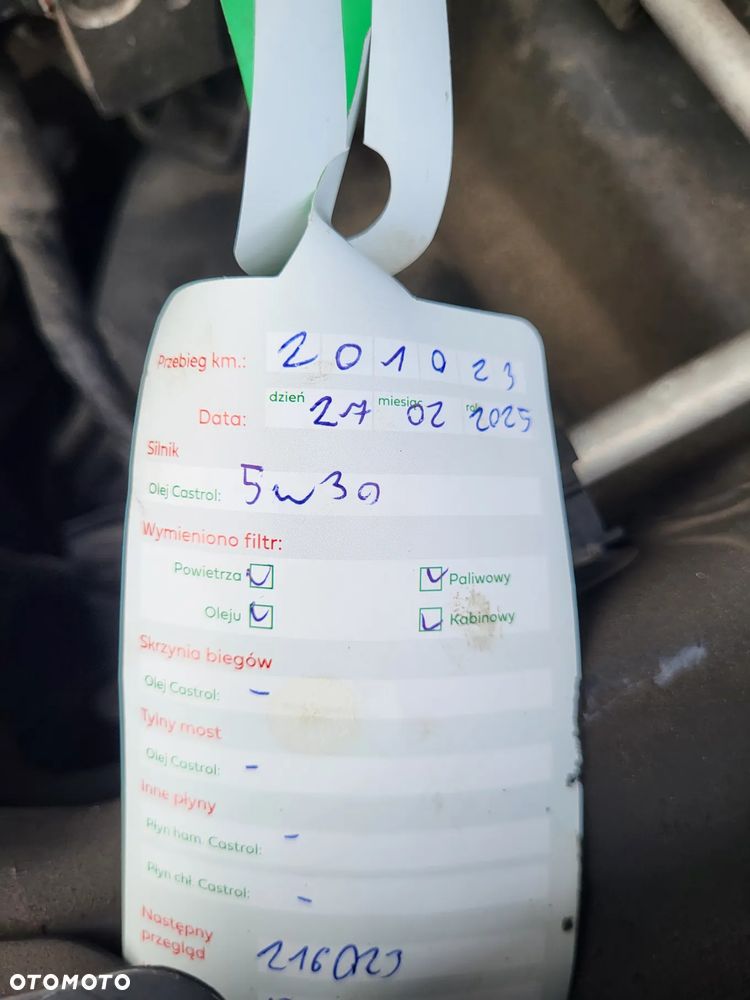 Przebieg km.: 201023
Data: dzień 27 miesiąc 02 rok 2025
Silnik
Olej Castrol: 5w30
Wymieniono filtr:
Powietrza ✓ ✓ Paliwowy
Oleju ✓ ✓ Kabinowy
Skrzynia biegów
Olej Castrol: -
Tylny most
Olej Castrol: -
Inne płyny
Płyn ham. Castrol: -
Płyn chł. Castrol: -
Następny
przegląd 216023
OTOMOTO